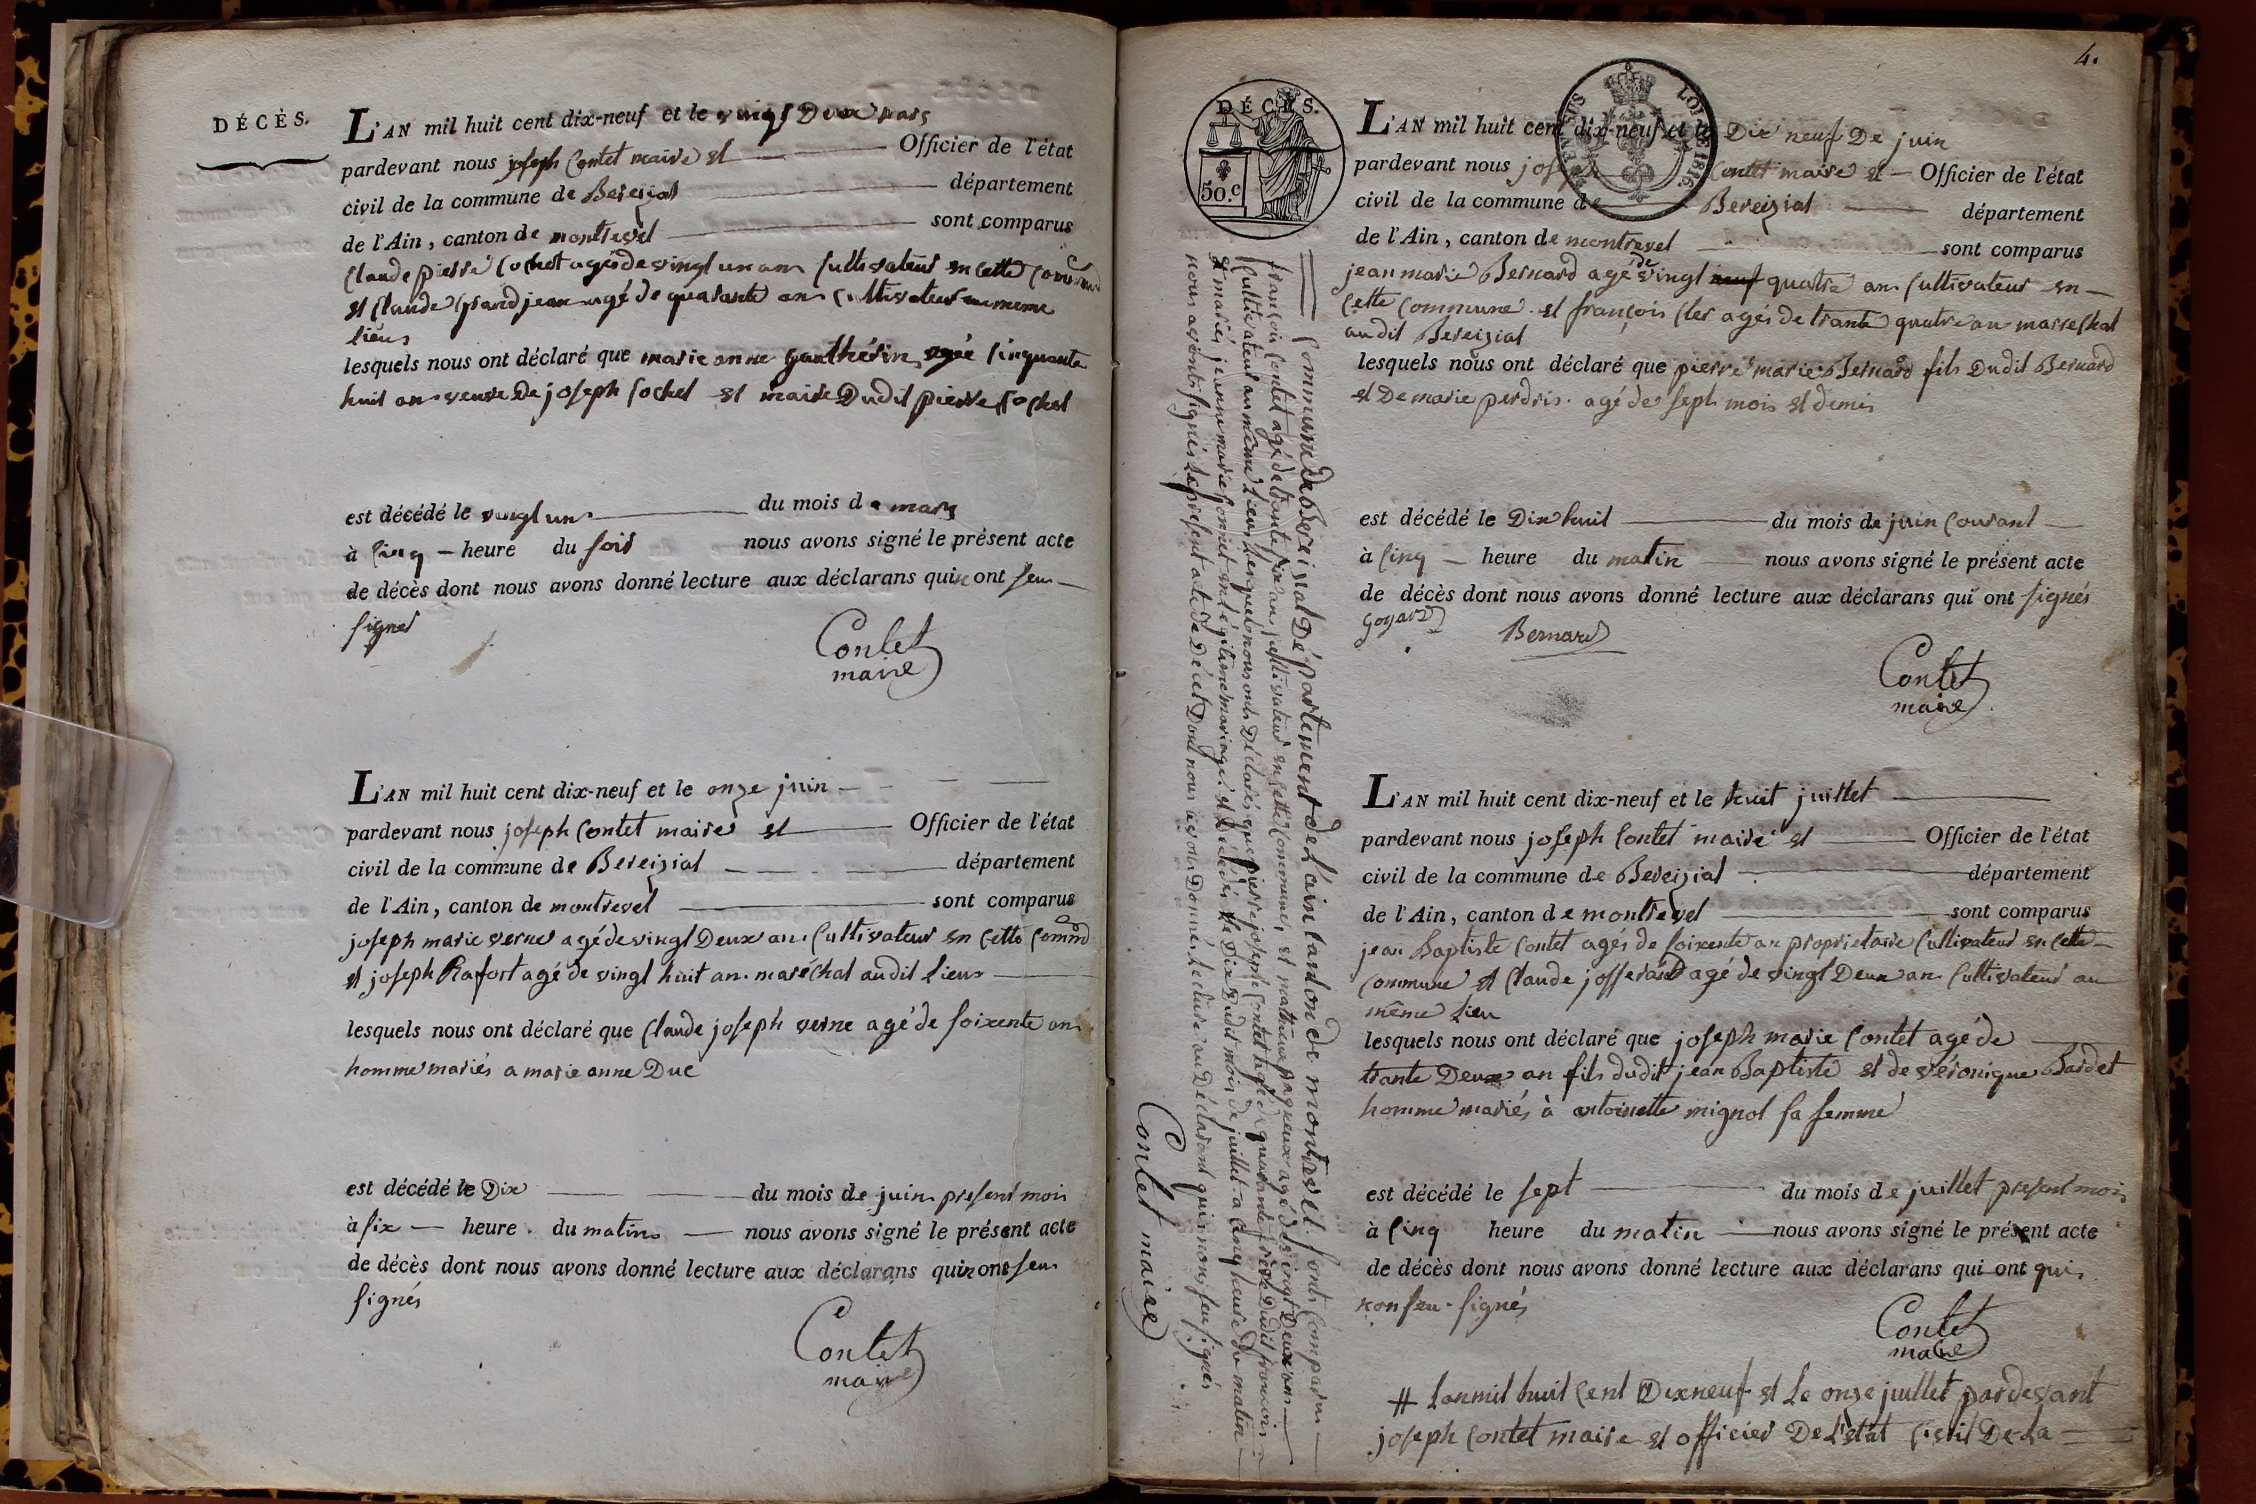 DÉCÈS.
L'AN mil huit cent dix-neuf et le vingt Deux mars
pardevant nous joseph Contet maire et Officier de l'état
civil de la commune de Bereizial département
de l'Ain, canton de montrevel sont comparus
Claude pierre Cochet agés de vingt un an Cultivateur en cette Commune
et Claude grandjean agé de quarante an Cultivateur au meme
lieu
lesquels nous ont déclaré que marie anne gauthérin agée Cinquante
huit an veuve De joseph Cochet et maire Dudit pierre Cochet
est décédé le vingt un du mois de mars
à Cinq heure du soir nous avons signé le présent acte
de décès dont nous avons donné lecture aux déclarans qui n ont seu
signer
Contet
maire
L'AN mil huit cent dix-neuf et le onze juin
pardevant nous joseph Contet maire et Officier de l'état
civil de la commune de Bereizial département
de l'Ain, canton de montrevel sont comparus
joseph marie verne agé de vingt Deux an Cultivateur en Cette Commd
et joseph Rafort agé de vingt huit an maréchal audit Lieu
lesquels nous ont déclaré que Claude joseph verne agé de soixente an
homme mariés a marie anne Duc
est décédé le Dix du mois de juin present mois
à six heure du matin nous avons signé le présent acte
de décès dont nous avons donné lecture aux déclarans qui n ont seu
signés
Contet
maire
4.
DÉCÈS.
50.c
LOI DE 1816.
L'AN mil huit cent dix-neuf et le Dix neuf De juin
pardevant nous joseph Contet maire et Officier de l'état
civil de la commune de Bereizial département
de l'Ain, canton de montrevel sont comparus
jean marie Bernard agé de vingt neuf quatre an Cultivateur en
Cette Commune et françois Cler agés de trante quatre an marechal
audit Bereizial
lesquels nous ont déclaré que pierre marie Bernard fils Dudit Bernard
et De marie perdrix agé de sept mois et demis
est décédé le Dix huit du mois de juin Courant
à Cinq heure du matin nous avons signé le présent acte
de décès dont nous avons donné lecture aux déclarans qui ont signés
goyard
Bernard
Contet
maire
L'AN mil huit cent dix-neuf et le huit juillet
pardevant nous joseph Contet maire et Officier de l'état
civil de la commune de Bereizial département
de l'Ain, canton de montrevel sont comparus
jean Baptiste Contet agés de soixente an proprietaire Cultivateur en cette
Commune et Claude josserand agé de vingt Deux an Cultivateur au
même Lieu
lesquels nous ont déclaré que joseph marie Contet agé de
trante Deux an fils dudit jean Baptiste et de véronique Bardet
homme mariés à antoinette mignot sa femme
est décédé le sept du mois de juillet present mois
à Cinq heure du matin nous avons signé le présent acte
de décès dont nous avons donné lecture aux déclarans qui ont qui
non seu signés
Contet
maire
# Lan mil huit Cent Dixneuf et Le onze juillet pardevant
joseph Contet maire et officier De L'état Civil De La
Commune de Bereizial Département de L'ain Canton de montrevel sont Comparu
françois Contet agé de trante six an Cultivateur en cette Commune et mathieux pagneux agé de vingt Deux an
Cultivateur au même Lieu Lesquel nous ont Déclarés que pierre joseph Contet agé de quarante trois Dudit françois
et mariés jeanne marie Contet en Légitime mariage et Décédé Le Dix Dudit mois de juillet a Cinq heure du matin
nous avons signés Le present acte de Décet Dont nous avons Donné Lecture au Déclarant qui non seu signés
Contet maire